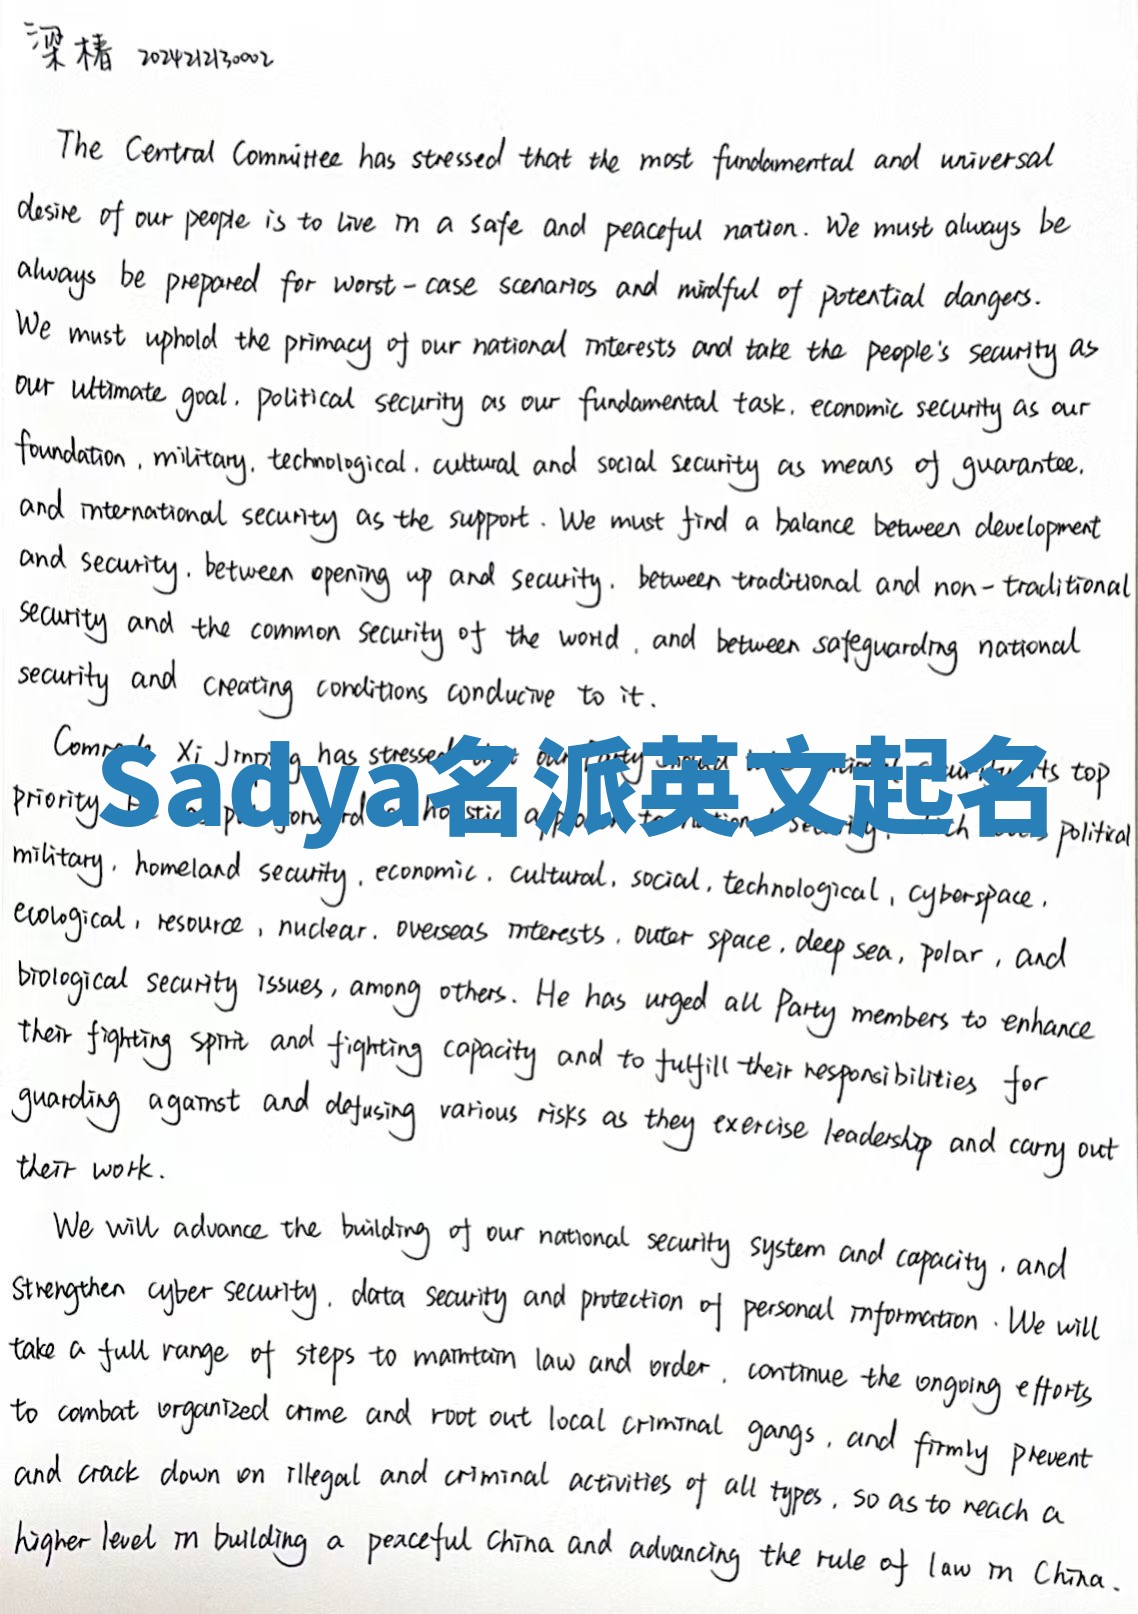 梁椿 2024212130002
The Central Committee has stressed that the most fundamental and universal
desire of our people is to live in a safe and peaceful nation. We must always be
always be prepared for worst-case scenarios and mindful of potential dangers.
We must uphold the primacy of our national interests and take the people's security as
our ultimate goal, political security as our fundamental task, economic security as our
foundation, military, technological, cultural and social security as means of guarantee,
and international security as the support. We must find a balance between development
and security, between opening up and security, between traditional and non-traditional
security and the common security of the world, and between safeguarding national
security and creating conditions conducive to it.
Xi Jinping has stressed our Party top
Sadya名派英文起名
priority political
military, homeland security, economic, cultural, social, technological, cyberspace,
ecological, resource, nuclear, overseas interests, outer space, deep sea, polar, and
biological security issues, among others. He has urged all Party members to enhance
their fighting spirit and fighting capacity and to fulfill their responsibilities for
guarding against and defusing various risks as they exercise leadership and carry out
their work.
We will advance the building of our national security system and capacity, and
strengthen cyber security, data security and protection of personal information. We will
take a full range of steps to maintain law and order, continue the ongoing efforts
to combat organized crime and root out local criminal gangs, and firmly prevent
and crack down on illegal and criminal activities of all types, so as to reach a
higher level in building a peaceful China and advancing the rule of law in China.